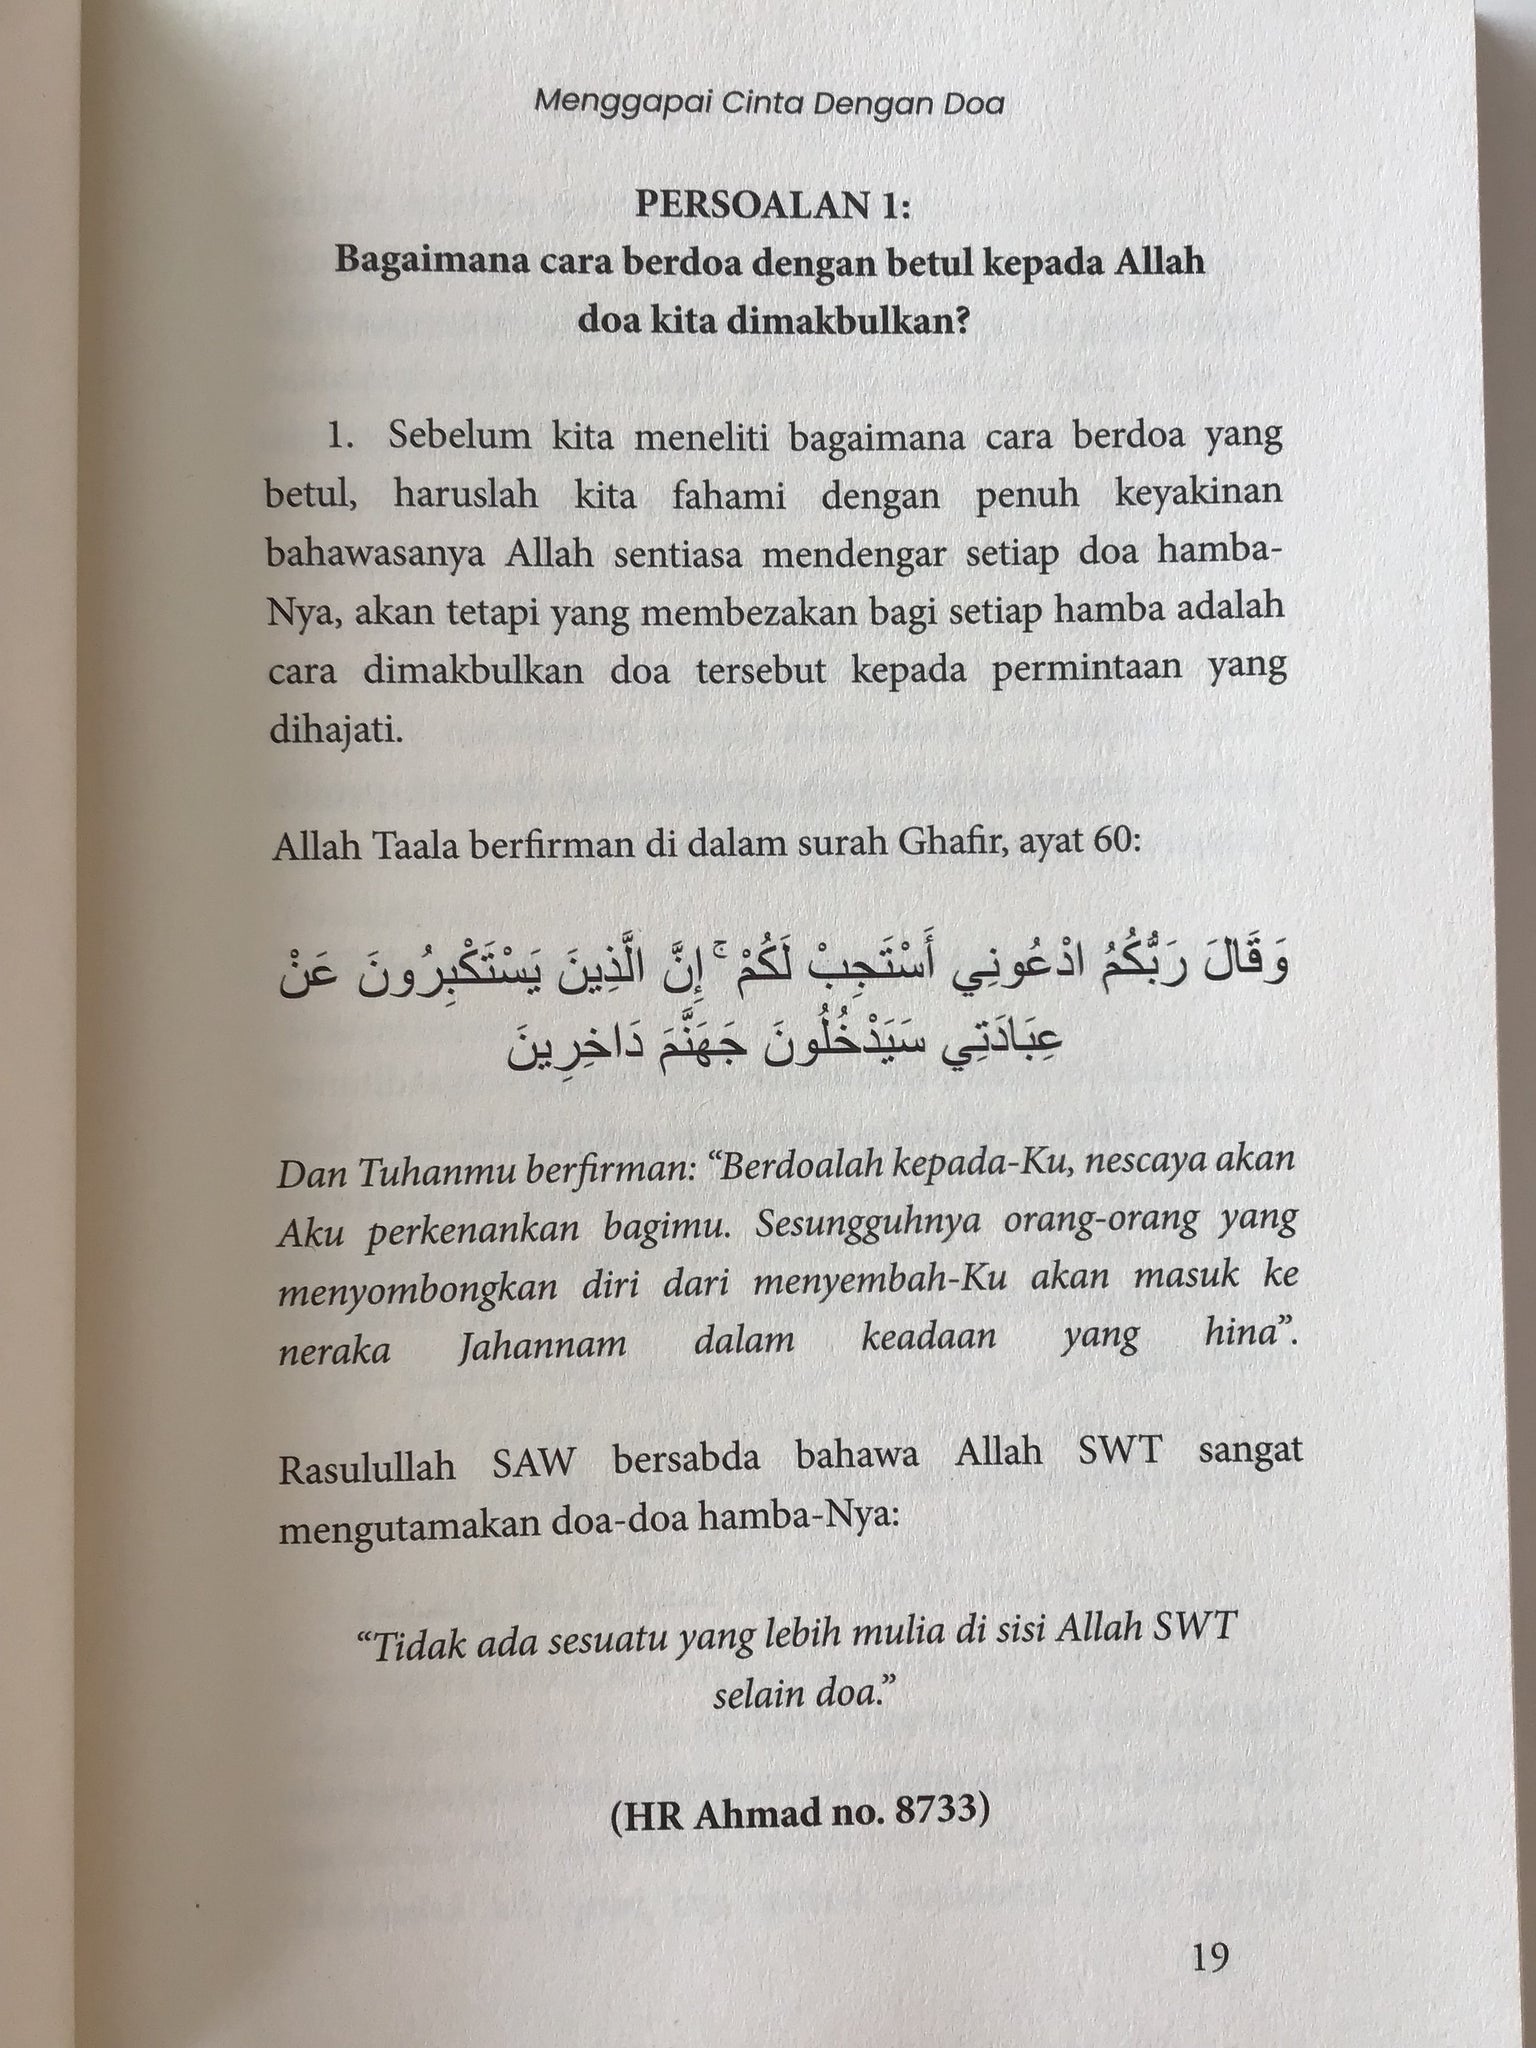 Menggapai Cinta Dengan Doa
PERSOALAN 1:
Bagaimana cara berdoa dengan betul kepada Allah
doa kita dimakbulkan?
1. Sebelum kita meneliti bagaimana cara berdoa yang
betul, haruslah kita fahami dengan penuh keyakinan
bahawasanya Allah sentiasa mendengar setiap doa hamba-
Nya, akan tetapi yang membezakan bagi setiap hamba adalah
cara dimakbulkan doa tersebut kepada permintaan yang
dihajati.
Allah Taala berfirman di dalam surah Ghafir, ayat 60:
وَقَالَ رَبُّكُمُ ادْعُونِي أَسْتَجِبْ لَكُمْ ۚ إِنَّ الَّذِينَ يَسْتَكْبِرُونَ عَنْ
عِبَادَتِي سَيَدْخُلُونَ جَهَنَّمَ دَاخِرِينَ
Dan Tuhanmu berfirman: “Berdoalah kepada-Ku, nescaya akan
Aku perkenankan bagimu. Sesungguhnya orang-orang yang
menyombongkan diri dari menyembah-Ku akan masuk ke
neraka Jahannam dalam keadaan yang hina”.
Rasulullah SAW bersabda bahawa Allah SWT sangat
mengutamakan doa-doa hamba-Nya:
“Tidak ada sesuatu yang lebih mulia di sisi Allah SWT
selain doa.”
(HR Ahmad no. 8733)
19